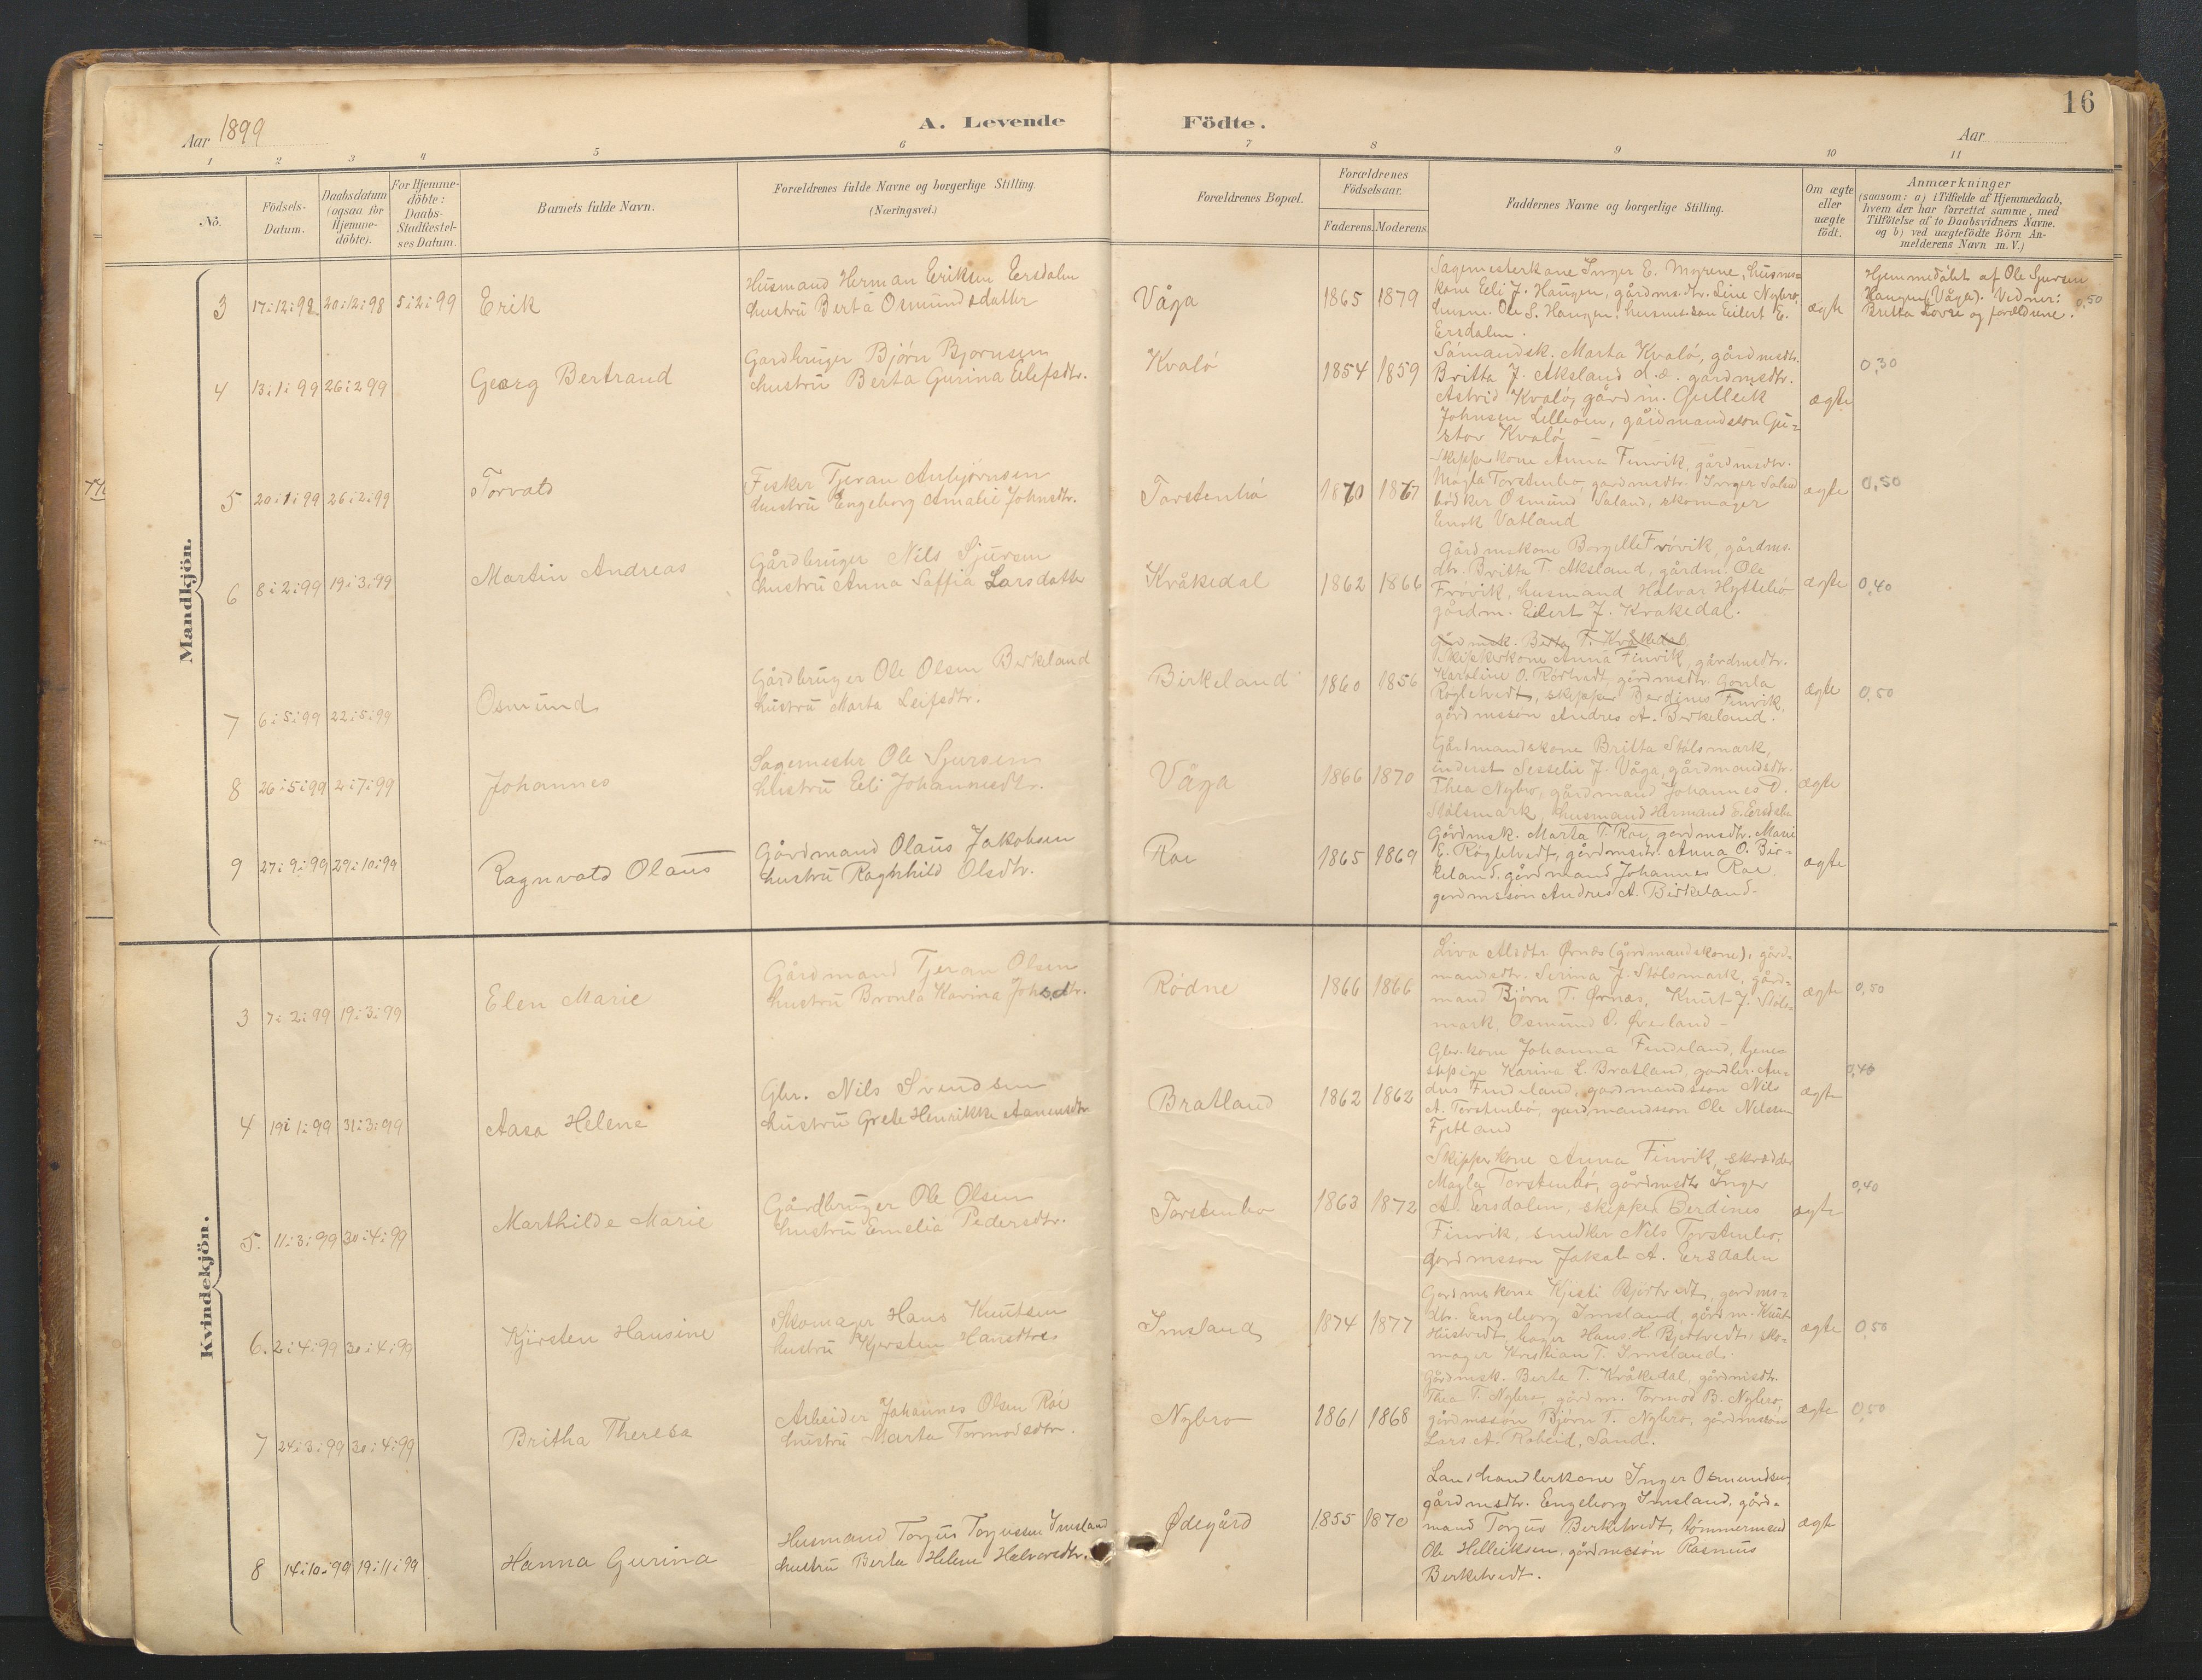 16
Aar 1899
A. Levende Födte.
Aar
1 2 3 4 5 6 7 8 9 10 11
No.
Födsels-
Datum.
Daabsdatum
(ogsaa for
Hjemme-
döbte).
For Hjemme-
döbte:
Daabs-
Stadfæstel-
ses Datum.
Barnets fulde Navn.
Forældrenes fulde Navne og borgerlige Stilling.
(Næringsvei.)
Forældrenes Bopæl.
Forældrenes
Födselsaar.
Faderens. Moderens.
Faddernes Navne og borgerlige Stilling.
Om ægte
eller
uægte
födt.
Anmærkninger
(saasom: a) i Tilfælde af Hjemmedaab,
hvem der har forrettet samme, med
Tilföielse af to Daabsvidners Navne.
og b) ved uægtefödte Börn An-
melderens Navn m. V.)
Mandkjön.
3 17:12:98 20:12:98 5:2:99 Erik
Husmand Herman Eriksen Eersdalen
hustrü Berta Osmundsdatter
Våga 1865 1879
Sagemesterkone Inger E. Moyrene, husms=
kone Eeli J. Haugen, gårdms.dtr. Line Nybro,
husm. Ole S. Haugen, husms.søn Eilert E.
Ersdalen.
ægte
Hjemmedøbt af Ole Sjursen
Haugen (Våga). Vidner:
Britta Lovse og forældrene. 0,50
4 13:1:99 26:2:99 Georg Bertrand
Gardbrüger Bjørn Bjornsen
hustrü Berta Gurina Eilefsdtr.
Kvaló 1854 1859
Sómandsk. Marta Kvaló, gårdmsdtr.
Britta J. Aksland d.æ. gardmsdtr.
Astrid Kvaló, gårdm. Gulleik
Johnsen Lilleøen, gårdmandssøn Gü=
stav Kvaló –
ægte 0,30
5 20:1:99 26:2:99 Torvald
Fisker Tjeran Anbjørnsen
hustrü Engeborg Amalie Johnsdtr.
Torstenbó 1870 1867
Skipperkone Anna Finvik, gårdmsdtr.
Magla Torstenbo, gardmsdtr. Inger Saland
bødker Osmund Saland, skomager
Enok Vatland
ægte 0,50
6 8:2:99 19:3:99 Martin Andreas
Gårdbrüger Nils Sjursen
hustrü Anna Saffia Larsdatter
Kvåkedal 1862 1866
Gårdmskone Borgille Frövik, gårdms.
dtr. Britta T. Aksland, gårdm. Ole
Frövik, husmand Halvar Hyttebó
gårdm. Eilert J. Kvakedal.
ægte 0,40
7 6:5:99 22:5:99 Osmünd
Gårdbrüger Ole Olsen Birkeland
hüstrü Marta Leifsdtr.
Birkeland 1860 1856
Gårdmsk. Berta T. Kvåkedal
Skipperkone Anna Finvik, gårdmsdtr.
Karoline O. Rørtvedt, gårdmsdtr. Gonla
Røgletvedt, skipper Berdines Finvik,
gårdmssøn Andres A. Birkeland.
ægte 0,50
8 26:5:99 2:7:99 Johannes
Sagemester Ole Sjursen
hüstrü Eeli Johannesdtr.
Våga 1866 1870
Gårdmandskone Britta Stólsmark,
inderst Sesselie J. Våga, gårdmandsdtr.
Thea Nybro, gårdmand Johannes D.
Stólsmark, husmand Hermand E. Ersdalen
ægte
9 27:9:99 29:10:99 Ragnvald Olaüs
Gårdmand Olaüs Jakobsen
hustrü Ragnhild Olsdtr.
Roe 1865 1869
Gårdmsk. Marta T. Roe, gardmsdtr. Marie
E. Røgletvedt, gårdmsdtr. Anna O. Bir=
keland, gårdmand Johannes Roe,
gardmssøn Andres A. Birkeland.
ægte
Kvindekjön.
3 7:2:99 19:3:99 Elen Marie
Gårdmand Tjeran Olsen
hustrü Bronla Karina Johsdtr.
Rødne 1866 1866
Liva Alsdtr. Ørnes (gårdmandskone), gård=
mandsdtr. Serina J. Stólsmark, gård=
mand Bjørn T. Ørnæs, Knüt J. Stóls=
mark, Osmund O. Øverland –
ægte 0,50
4 19:1:99 31:3:99 Aasa Helene
Gbr. Nils Svendsen
hüstrü Grete Henrikke Aanensdtr.
Bratland 1862 1862
Gbr.kone Johanna Findeland, tjene=
stepige Karina L. Bratland, gardbr. An=
dres Findeland, gardmandssøn Nils
A. Torstenbo, gardmandssøn Ole Nilssen
Fjetland
ægte 0,40
5. 11:3:99 30:4:99 Marthilde Marie
Gårdbrüger Ole Olsen
hustrü Emelia Pedersdtr.
Torstenbo 1863 1872
Skipperkone Anna Finvik, skrædder
Magla Torstenbó, gårdmsdtr. Inger
A. Ersdalen, skipper Berdines
Finvik, snedker Nils Torstenbo,
gardmssøn Jakob A. Ersdalen
ægte 0,40
6. 2:4:99 30:4:99 Kjirsten Hansine
Skomager Hans Knütsen
hustrü Kjersten Hansdtr.
Imsland 1874 1877
Gardmskone Kjesti Bjortvedt, gardms=
dtr. Engeborg Imsland, gårdm. Knüt
Hüstvedt, bager Hans H. Bjortvedt, sko=
mager Kristian T. Imsland.
ægte 0,50
7 24:3:99 30:4:99 Britha Theresa
Arbeider Johannes Olsen Róe
hustrü Marta Tormodsdtr.
Nybro 1861 1868
Gårdmsk. Berta T. Kråkedal, gårdmsdtr.
Thea T. Nybro, gårdm. Tormod B. Nybro,
gårdmssøn Bjørn T. Nybro, gårdmssøn
Lars A. Roheid, Sand.
ægte 0,50
8 14:10:99 19:11:99 Hanna Gurina
Husmand Torjüs Torjussen Imsland
hustrü Berta Helene Halvorsdtr.
Ødegård 1855 1870
Landhandlerkone Inger Osmundsen,
gårdmsdtr. Engeborg Imsland, gård=
mand Torjus Berketvedt, tømmermand
Ole Helleiksen, gårdmssøn Rasmüs
Berketvedt.
ægte